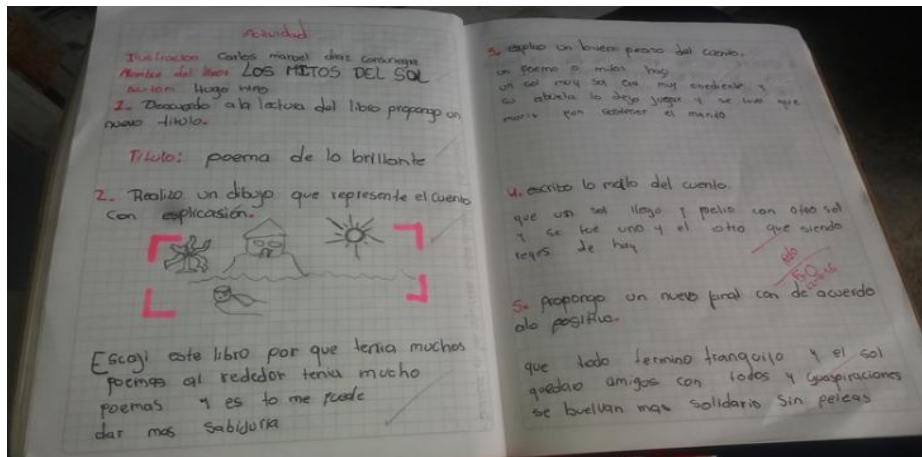 Actividad
Ilustracion Carlos manuel diaz
Nombre del libro LOS MITOS DEL SOL
Autor: Hugo Niño
1. Deacuerdo ala lectura del libro propongo un
nuevo titulo.
Titulo: poema de lo brillante
2. Realizo un dibujo que represente el cuento
con esplicasión.
Escoji este libro por que tenia muchos
poemas al rededor tenia mucho
poemas y es to me puede
dar mas sabiduria
3. esplico un buen del cuento.
un poema o mitos hay
un sol muy sol era muy y
su abuela lo dejo jugar y se tuvo que
morir por el mundo
4. escribo lo malo del cuento.
que un sol llego y pelio con otro sol
y se fue uno y el otro que siendo
de hay
5.0
5. propongo un nuevo final con de acuerdo
alo positivo.
que todo termino tranquilo y el sol
quedao amigos con todos y
se buelvan mas solidario sin peleas